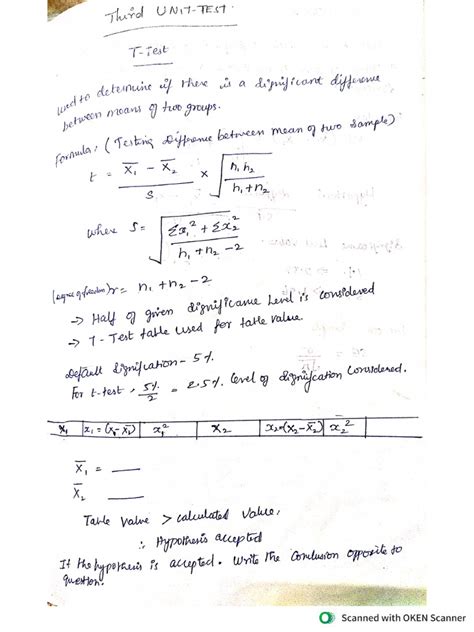 Third UNIT-TEST.
T-Test
used to determine if there is a significant difference
between means of two groups.
Formula: (Testing Difference between mean of two sample)
t = X̄₁ - X̄₂ / S × √ n₁ n₂ / n₁ + n₂
where S = √ Σx₁² + Σx₂² / n₁ + n₂ - 2
(degree of freedom) r = n₁ + n₂ - 2
→ Half of given significance Level is considered
→ T-Test table used for table value.
Default signification - 5%
For t-test, 5%/2 = 2.5% level of signification considered.
X₁ | x₁ = (X₁ - X̄₁) | x₁² | X₂ | x₂ = (X₂ - X̄₂) | x₂²
X̄₁ = ___
X̄₂ ___
Table value > calculated value,
∴ Hypothesis accepted
If the hypothesis is accepted. Write the conclusion opposite to
question.
Scanned with OKEN Scanner